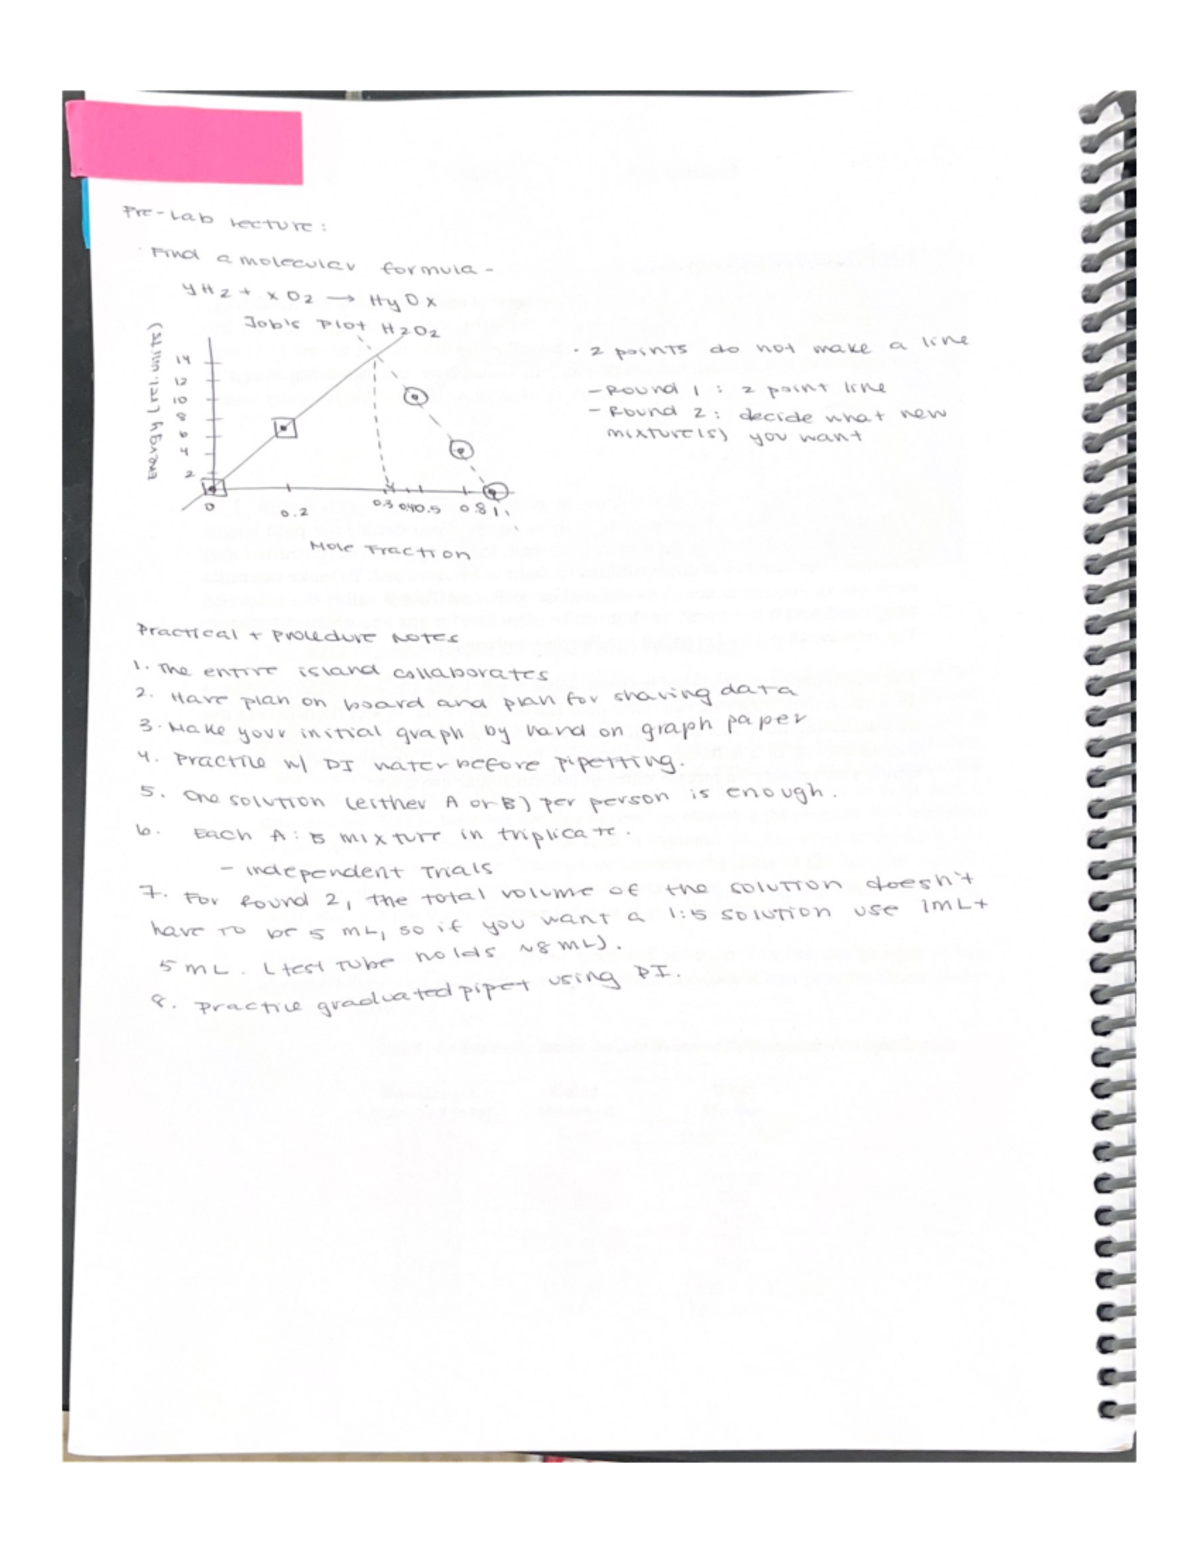 Pre-Lab Lecture:
· Find a molecular formula -
yH2 + xO2 → HyOx
Job's Plot H2O2
Energy (rel. units)
14
12
10
8
6
4
2
0
0.2
0.3 0.4 0.5
0.8 1
Mole Fraction
· 2 points do not make a line
- Round 1 : 2 point line
- Round 2: decide what new
mixture(s) you want
Practical + Procedure Notes
1. The entire island collaborates
2. Have plan on board and plan for sharing data
3. Make your initial graph by hand on graph paper
4. Practice w/ DI water before pipetting.
5. One solution (either A or B) per person is enough.
6. Each A:B mixture in triplicate.
- independent Trials
7. For Round 2, the total volume of the solution doesn't
have to be 5 mL, so if you want a 1:5 solution use 1mL+
5 mL. (test tube holds ~8 mL).
8. Practice graduated pipet using DI.